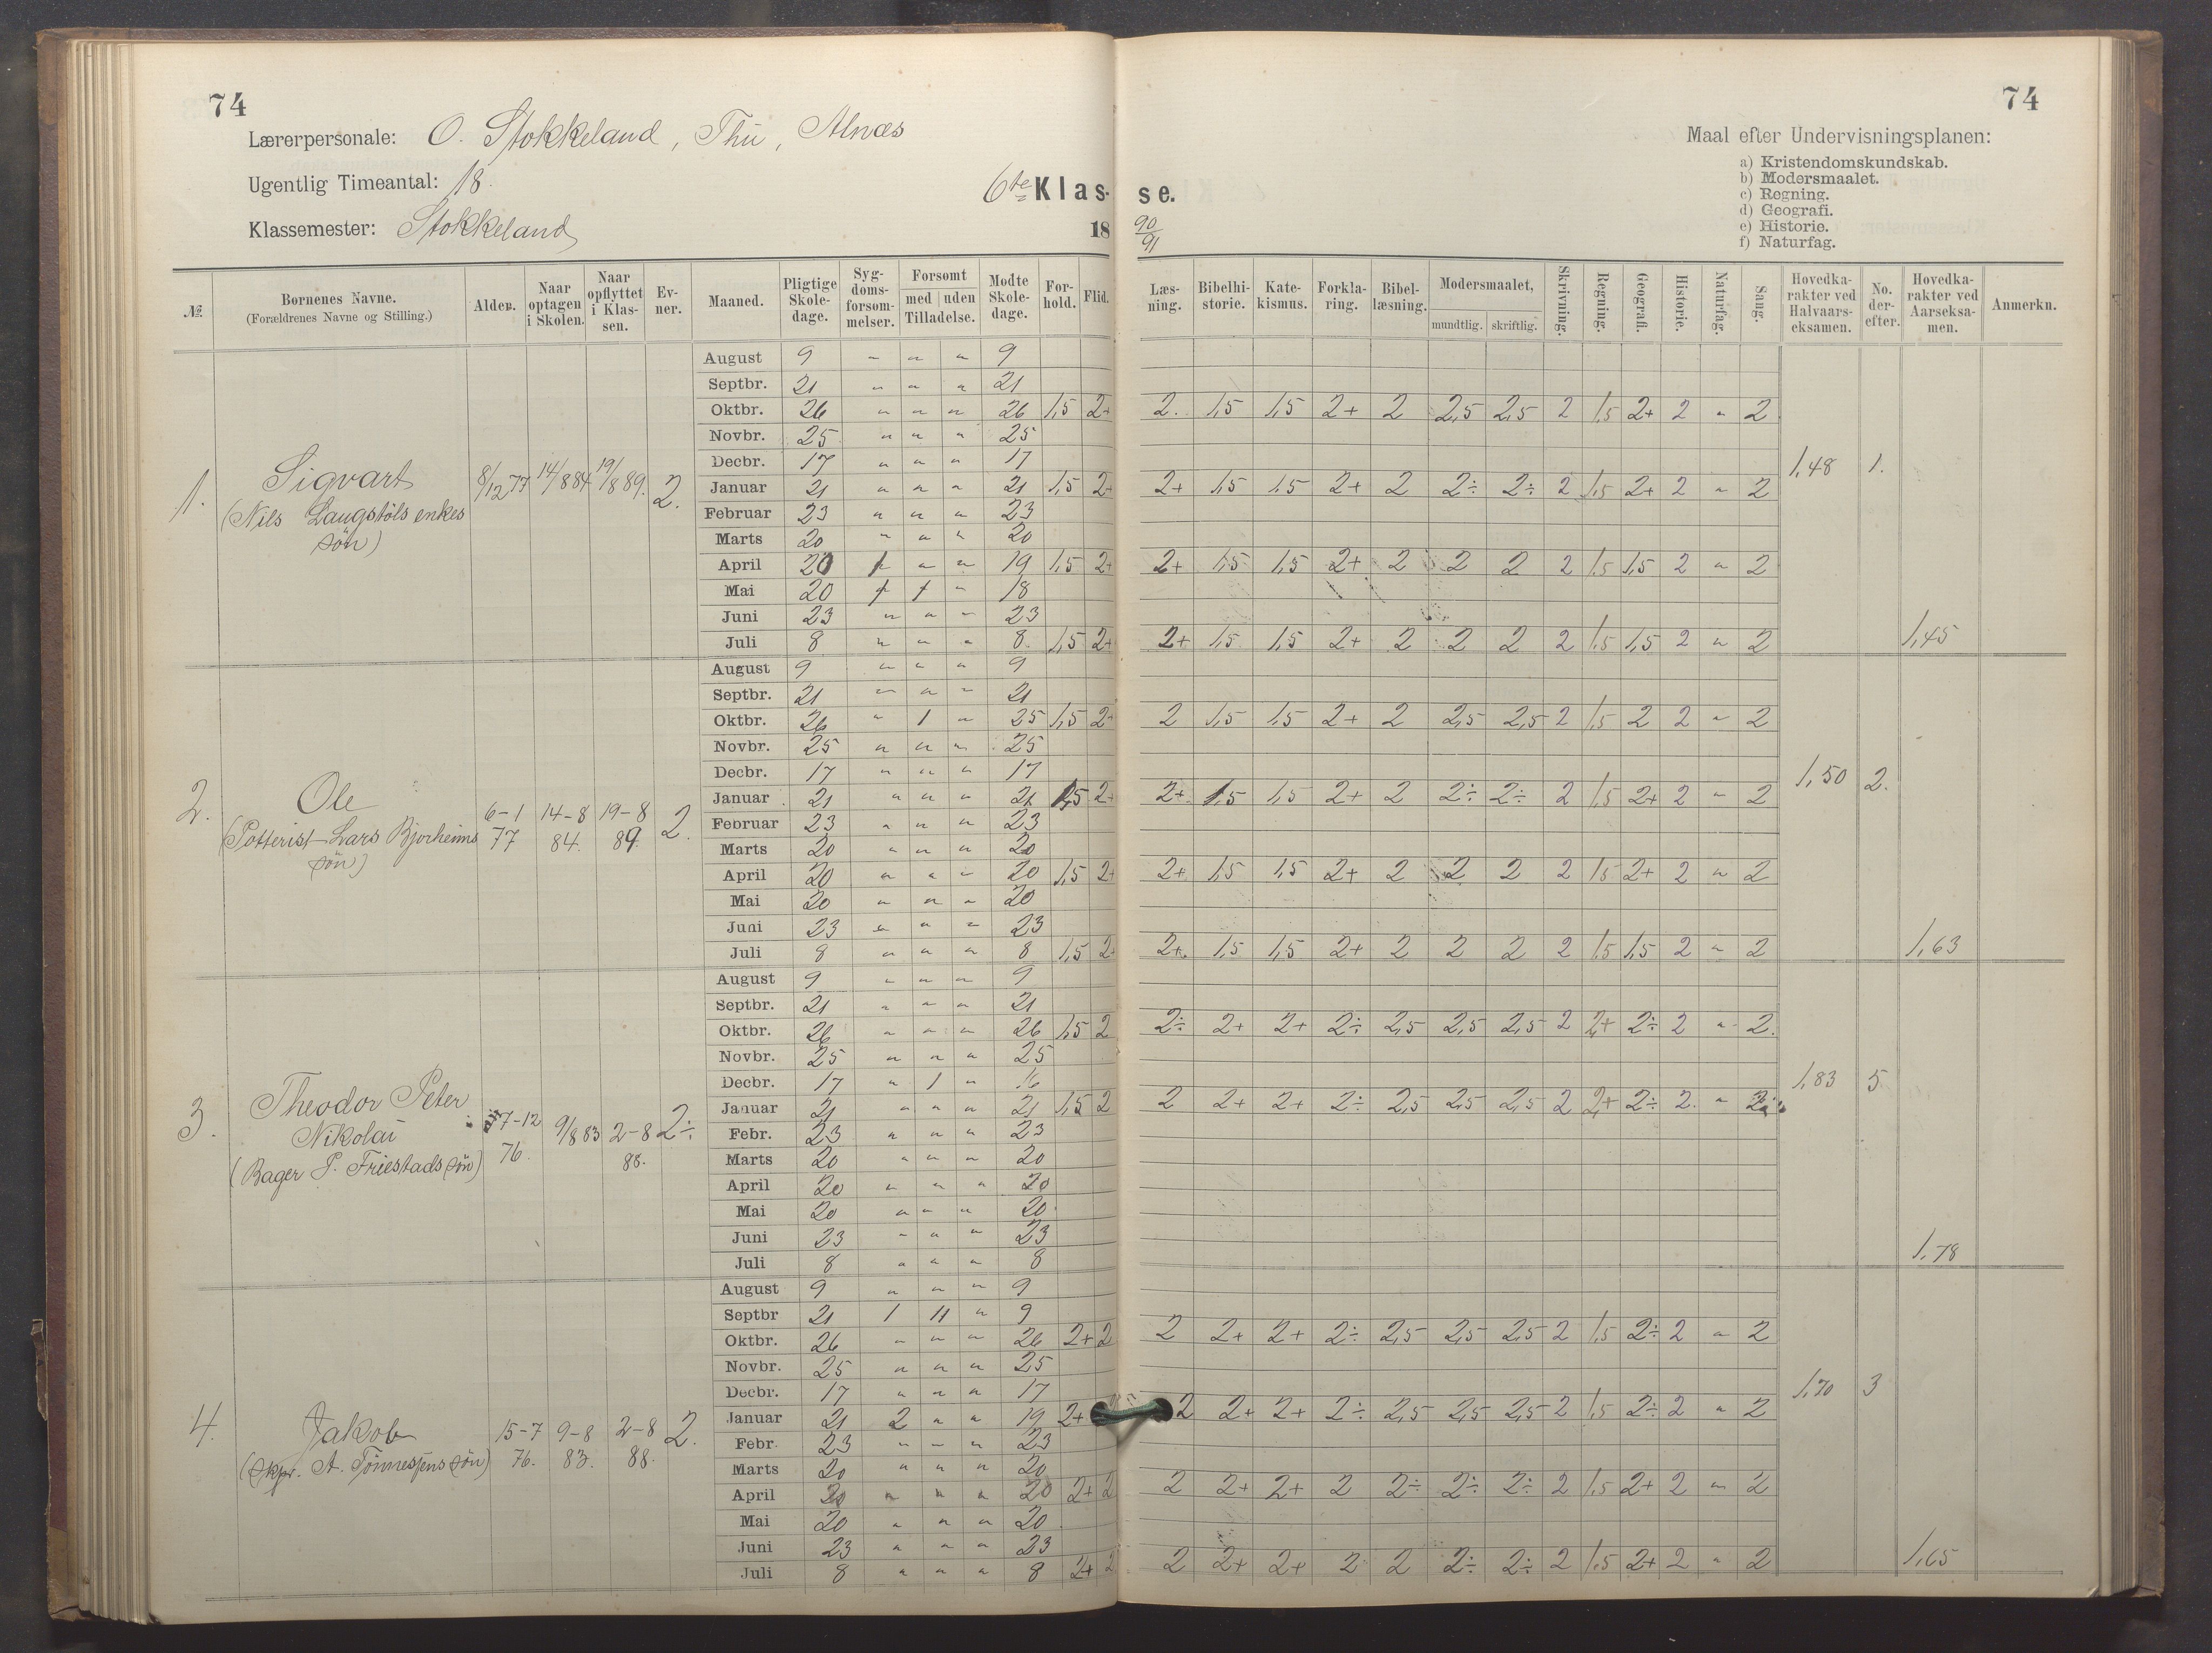 74
Lærerpersonale: O. Stokkeland, Thu, Alnæs
Ugentlig Timeantal: 18.
Klassemester: Stokkeland
6te Klas-
18
se.
90/91
74
Maal efter Undervisningsplanen:
a) Kristendomskundskab.
b) Modersmaalet.
c) Regning.
d) Geografi.
e) Historie.
f) Naturfag.
№ | Børnenes Navne. (Forældrenes Navne og Stilling.) | Alder. | Naar optagen i Skolen. | Naar opflyttet i Klassen. | Evner. | Maaned. | Pligtige Skoledage. | Sygdomsforsømmelser. | Forsømt med uden Tilladelse. | Mødte Skoledage. | Forhold. | Flid. | Læsning. | Bibelhistorie. | Katekismus. | Forklaring. | Bibellæsning. | Modersmaalet, mundtlig. skriftlig. | Skrivning. | Regning. | Geografi. | Historie. | Naturfag. | Sang. | Hovedkarakter ved Halvaarseksamen. | No. derefter. | Hovedkarakter ved Aarseksamen. | Anmerkn.
1. Sigvart (Nils Laugstøls enkes søn) 8/12 77 14/8 84 19/8 89. 2.
August 9 " " " 9
Septbr. 21 " " " 21
Oktbr. 26 " " " 26 1,5 2+ 2. 1,5 1,5 2+ 2 2,5 2,5 2 1,5 2+ 2 " 2
Novbr. 25 " " " 25
Decbr. 17 " " " 17 1,48 1.
Januar 21 " " " 21 1,5 2+ 2+ 1,5 1,5 2+ 2 2÷ 2÷ 2 1,5 2+ 2 " 2
Februar 23 " " " 23
Marts 20 " " " 20
April 20 1 " " 19 1,5 2+ 2+ 1,5 1,5 2+ 2 2 2 2 1,5 1,5 2 " 2
Mai 20 1 1 " 18
Juni 23 " " " 23
Juli 8 " " " 8. 1,5 2+ 2+ 1,5 1,5 2+ 2 2 2 2 1,5 1,5 2 " 2 1,45
2. Ole (Potterist Lars Bjorheims søn) 6-1 77 14-8 84. 19-8 89. 2.
August 9 " " " 9
Septbr. 21 " " " 21
Oktbr. 26 " 1 " 25 1,5 2+ 2 1,5 1,5 2+ 2 2,5 2,5 2 1,5 2 2 " 2
Novbr. 25 " " " 25
Decbr. 17 " " " 17 1,50 2.
Januar 21 " " " 21 1,5 2+ 2+ 1,5 1,5 2+ 2 2÷ 2÷ 2 1,5 2+ 2 " 2
Februar 23 " " " 23
Marts 20 " " " 20
April 20 " " " 20 1,5 2+ 2+ 1,5 1,5 2+ 2 2 2 2 1,5 2+ 2 " 2
Mai 20 " " " 20
Juni 23 " " " 23
Juli 8 " " " 8 1,5 2 2+ 1,5 1,5 2+ 2 2 2 2 1,5 1,5 2 " 2 1,63
3. Theodor Peter Nikolai (Bager P. Friestads søn) 7-12 76. 9/8 83 2-8 88. 2÷
August 9 " " " 9
Septbr. 21 " " " 21
Oktbr. 26 " " " 26 1,5 2 2÷ 2+ 2+ 2÷ 2,5 2,5 2,5 2 2+ 2÷ 2 " 2.
Novbr. 25 " " " 25
Decbr. 17 " 1 " 16 1,83 5
Januar 21 " " " 21 1,5 2 2 2+ 2+ 2÷ 2,5 2,5 2,5 2 2+ 2÷ 2. " 2
Febr. 23 " " " 23
Marts 20 " " " 20
April 20 " " " 20
Mai 20 " " " 20
Juni 23 " " " 23
Juli 8 " " " 8 1,78
4. Jakob (Skpr. A. Tönnesens søn) 15-7 76. 9-8 83. 2-8 88. 2.
August 9 " " " 9
Septbr 21 1 11 " 9
Oktbr. 26 " " " 26 2+ 2 2 2+ 2+ 2÷ 2,5 2,5 2,5 2 1,5 2÷ 2 " 2
Novbr. 25 " " " 25
Decbr. 17 " " " 17 1,70 3
Januar 21 2 " " 19 2+ 2 2+ 2+ 2÷ 2,5 2,5 2,5 2 1,5 2÷ 2 " 2
Febr. 23 " " " 23
Marts 20 " " " 20
April 20 " " " 20 2+ 2 2 2+ 2+ 2 2÷ 2÷ 2÷ 2 1,5 2+ 2 " 2
Mai 20 " " " 20
Juni 23 " " " 23
Juli 8 " " " 8 2+ 2 2 2+ 2+ 2 2 2÷ 2÷ 2 1,5 2+ 2 " 2 1,65